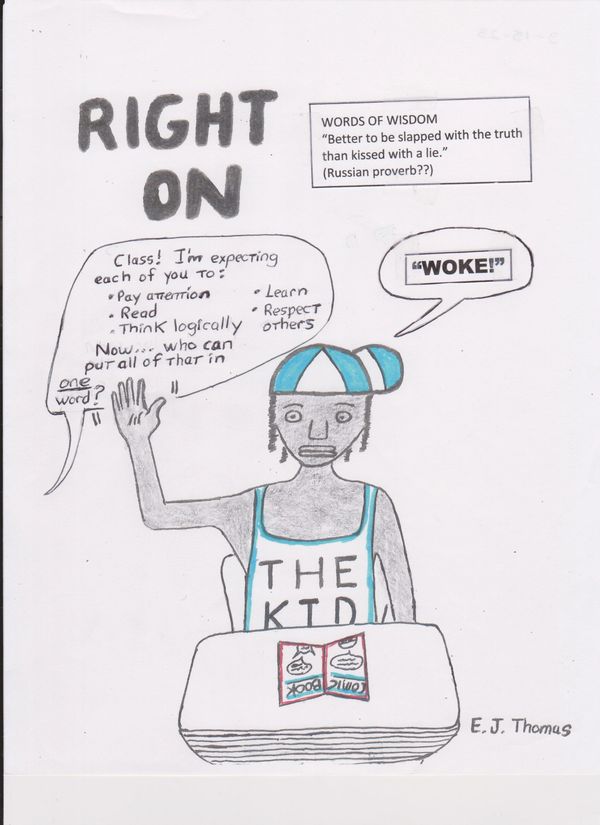 RIGHT
ON
WORDS OF WISDOM
“Better to be slapped with the truth
than kissed with a lie.”
(Russian proverb??)
Class! I'm expecting
each of you to:
• Pay attention
• Read
• Think logically
• Learn
• Respect
others
Now... who can
put all of that in
one
word?
“WOKE!”
THE
KID
COMIC
BOOK
E.J. Thomas